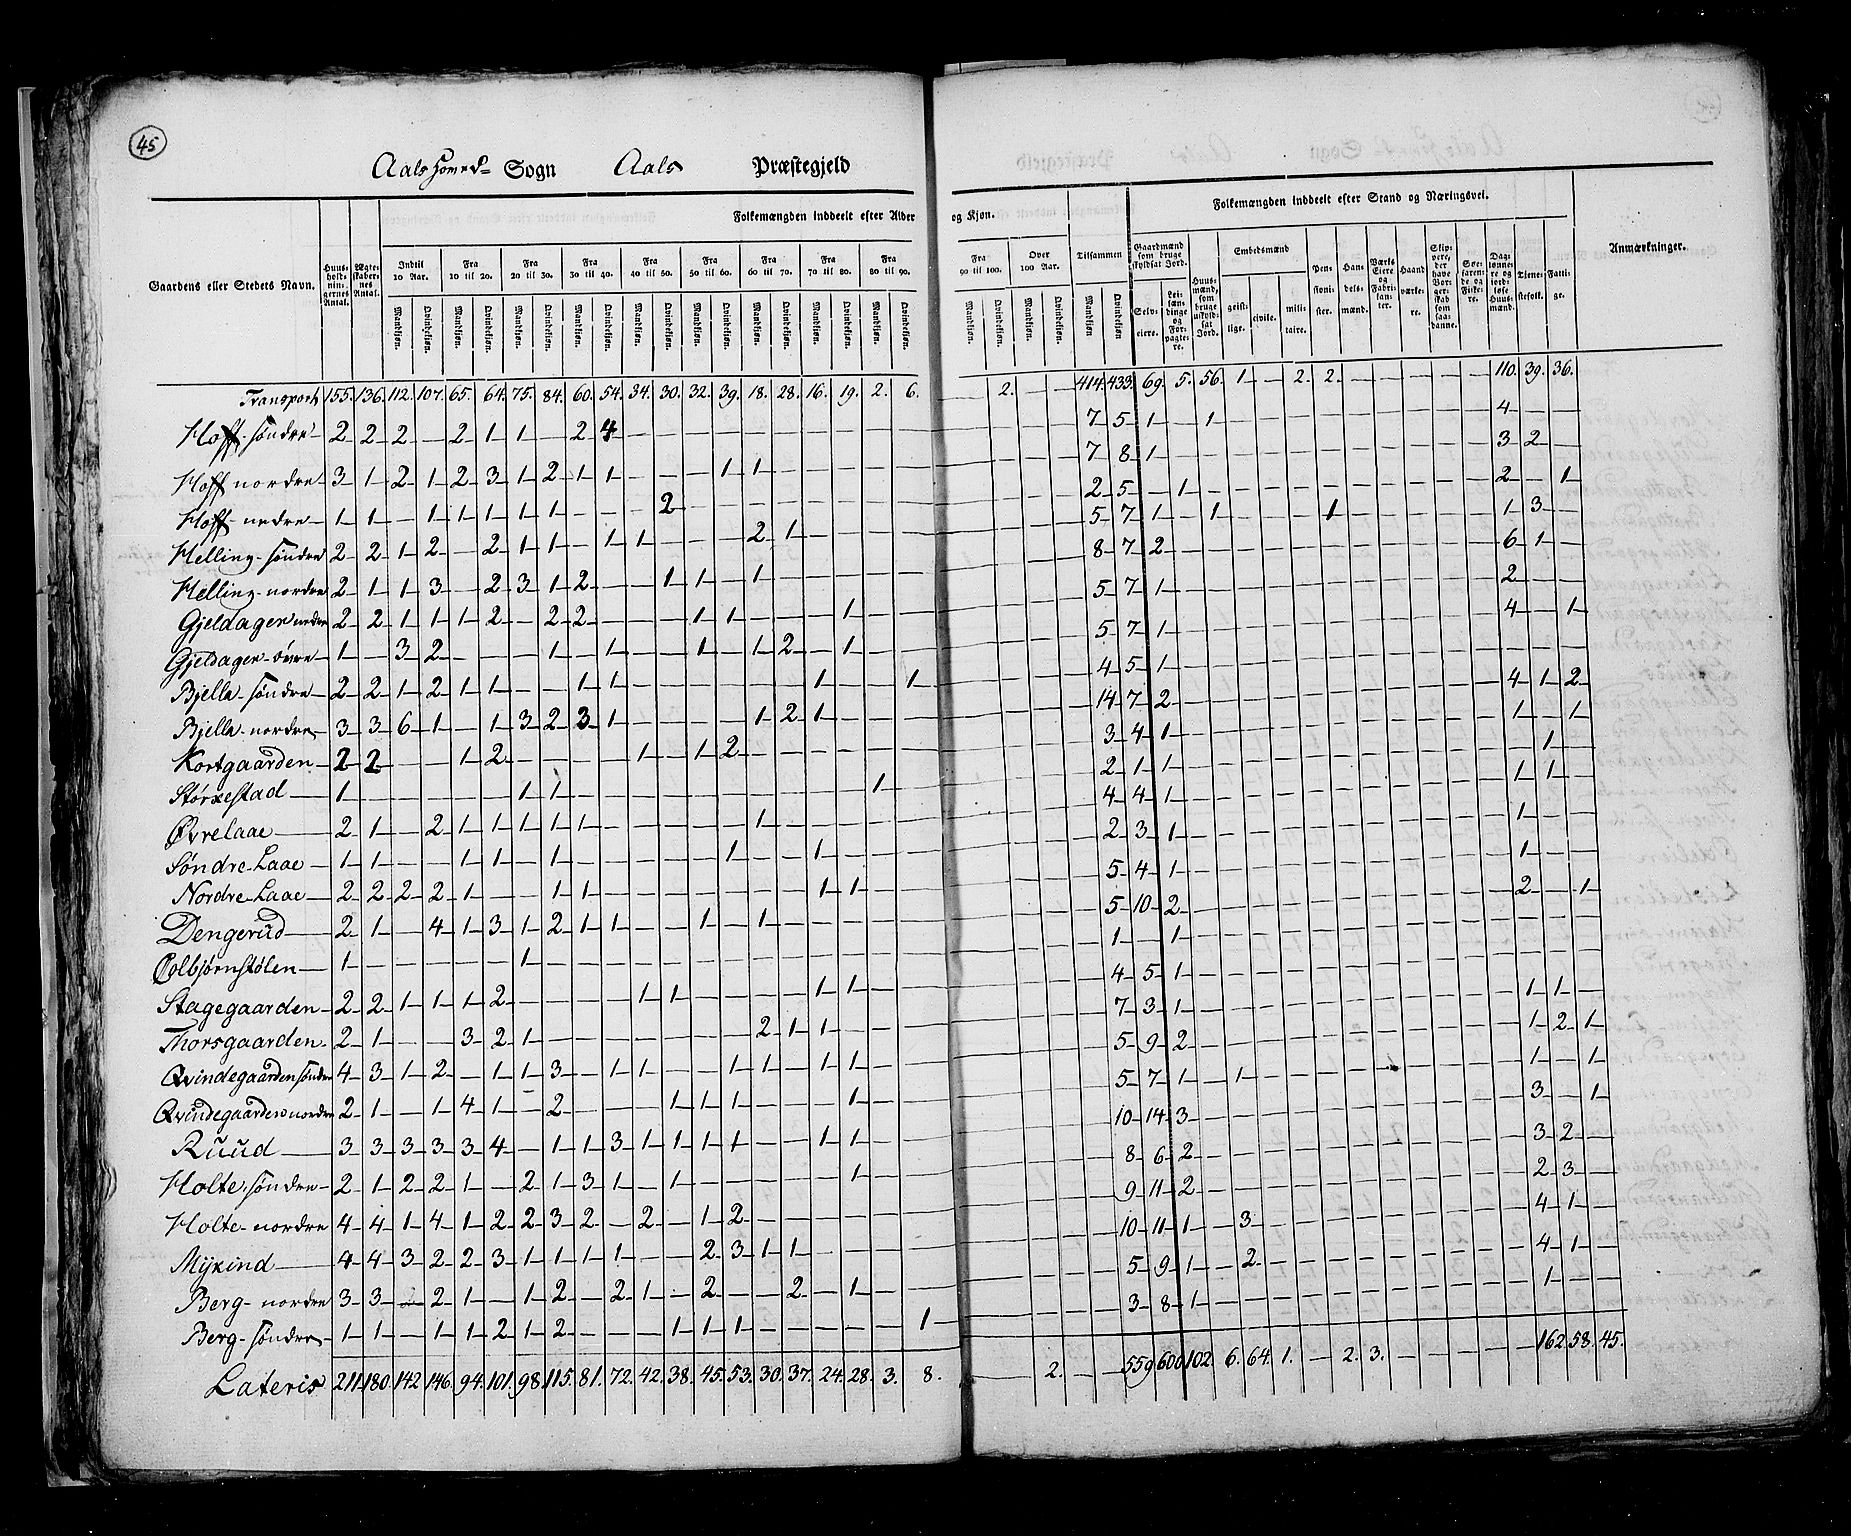 45
Aals Hoved Sogn Aals Præstegjeld
Gaardens eller Stedets Navn. Huusholdningernes Antal. Ægteskabernes Antal. Folkemængden inddeelt efter Alder og Kjøn. Tilsammen Folkemængden inddeelt efter Stand og Næringsvei. Anmærkninger.
Indtil 10 Aar. Fra 10 til 20. Fra 20 til 30. Fra 30 til 40. Fra 40 til 50. Fra 50 til 60. Fra 60 til 70. Fra 70 til 80. Fra 80 til 90. Fra 90 til 100. Over 100 Aar.
Mandkjøn. Qvindekjøn.
Gaardmænd som bruge skyldsat Jord. Selveiere. Leilændinge og Forpagtere. Huusmænd, som bruge uskyldsat Jord. Embedsmænd geistlige. civile. militaire. Pensionister. Handelsmænd. Værks Eiere og Fabrikanter. Haandværkere. Skippere, der have Borgerskab som saadanne. Søefarende og Fiskere. Daglønnere og jordløse Huusmænd. Tjenestefolk. Fattige.
Transport 155. 136. 112. 107. 65. 64. 75. 84. 60. 54. 34. 30. 32. 39. 18. 28. 16. 19. 2. 6. — 2. — — 414. 433. 69. 5. 56. 1 — 2. 2. — — — — — 110. 39. 36.
Hoff søndre 2 2 2 — 2 1 1 — 2 4 — 7 5 1 — 1 — 4 — —
Hoff nordre 3 1 2 1 2 3 1 2 1 1 — — — 1 1 — 7 8 1 — 3 2 —
Hoff nedre 1 1 — 1 1 1 1 1 — — — 2 — 2 5 — 1 — 2 — 1
Helling søndre 2 2 1 2 — 2 1 1 — 1 1 — — — 2 1 — 5 7 1 — 1 — 1 — 1 3 —
Helling nordre 2 1 1 3 — 2 3 1 2 — — 1 1 — 1 — 8 7 2 — 6 1 —
Gjeldager nedre 2 2 1 1 1 2 — 2 2 — — — 1 1 — — — 1 — 5 7 1 — 2 — —
Gjeldager øvre 1 — 3 2 — — — 1 — 1 — — 1 — 1 2 — 1 — 5 7 1 — 4 — 1
Bjella søndre 2 2 1 2 1 1 — — 1 1 — — — — — — 1 — — 1 4 5 1 —
Bjella nordre 3 3 6 1 — 1 3 2 3 1 — — — — 1 2 1 — 14 7 2 — 4 1 2
Kortgaarden 2 2 — — 1 2 — — — — 1 — 1 2 — 3 4 1 — 1 — 1
Størxestad 1 — — — — — 1 1 — — — — — — — — — — 1 — 2 1 1 — 1 —
Øvrelaae 2 1 — 2 1 1 1 1 1 — — — — — 1 — 4 4 1 — 1 1 —
Søndre Laae 1 1 — — 1 1 — 1 — — — — — 1 — — 1 — 2 3 1 — 1 — —
Nordre Laae 2 2 2 2 1 — — 1 1 — — — — — — — 1 1 — 5 4 1 — 1 — —
Dengerud 2 1 — 4 1 3 1 2 1 1 — — 1 — 1 — 5 10 2 — 2 — 1
Colbjørnstølen 1 — — — — — 1 — 1 — 1 —
Stagegaarden 2 2 1 1 1 2 — — — — 1 1 — — — — 1 1 — 4 5 1 —
Thorsgaarden 2 1 — — 3 2 1 — — — — — — — 2 1 1 — 7 3 1 — 1 1 —
Qvindegaarden søndre 4 3 1 2 — 1 1 3 — 1 1 — — 1 1 — 1 1 — 5 9 2 — 1 2 1
Qvindegaarden nordre 2 1 — 1 4 1 — 2 — — — 1 1 1 — — — 1 — 5 7 1 — 1 — 1 — 1
Ruud 3 3 3 3 3 4 — 1 1 3 1 1 1 1 — — 1 1 — 10 14 3 — 3 — 1
Holte søndre 2 1 2 2 1 — 2 1 3 1 — 1 — — — — — 1 — 8 6 2 — 3 2 —
Holte nordre 4 4 1 4 1 2 2 3 2 — 2 — 1 2 — 9 11 2 — 2 3 —
Myxind 4 4 3 2 2 3 1 1 1 1 — — 2 3 1 1 — 10 11 1 — 3 — 4 1 —
Berg nordre 3 3 — 2 1 — 1 2 — 2 1 — 2 — — 2 — 1 — 5 9 1 — 2 — 4 1 —
Berg søndre 1 1 — 1 1 2 1 2 — — — 1 1 1 — — — — — 1 3 8 1 — 1 — —
Lateris 211. 180. 142. 146. 94. 101. 98. 115. 81. 72. 42. 38. 45. 53. 30. 37. 24. 28. 3. 8. — 2. — — 559 600 102. 6. 64. 1. — 2. 3. — — — — — 162. 58. 45.